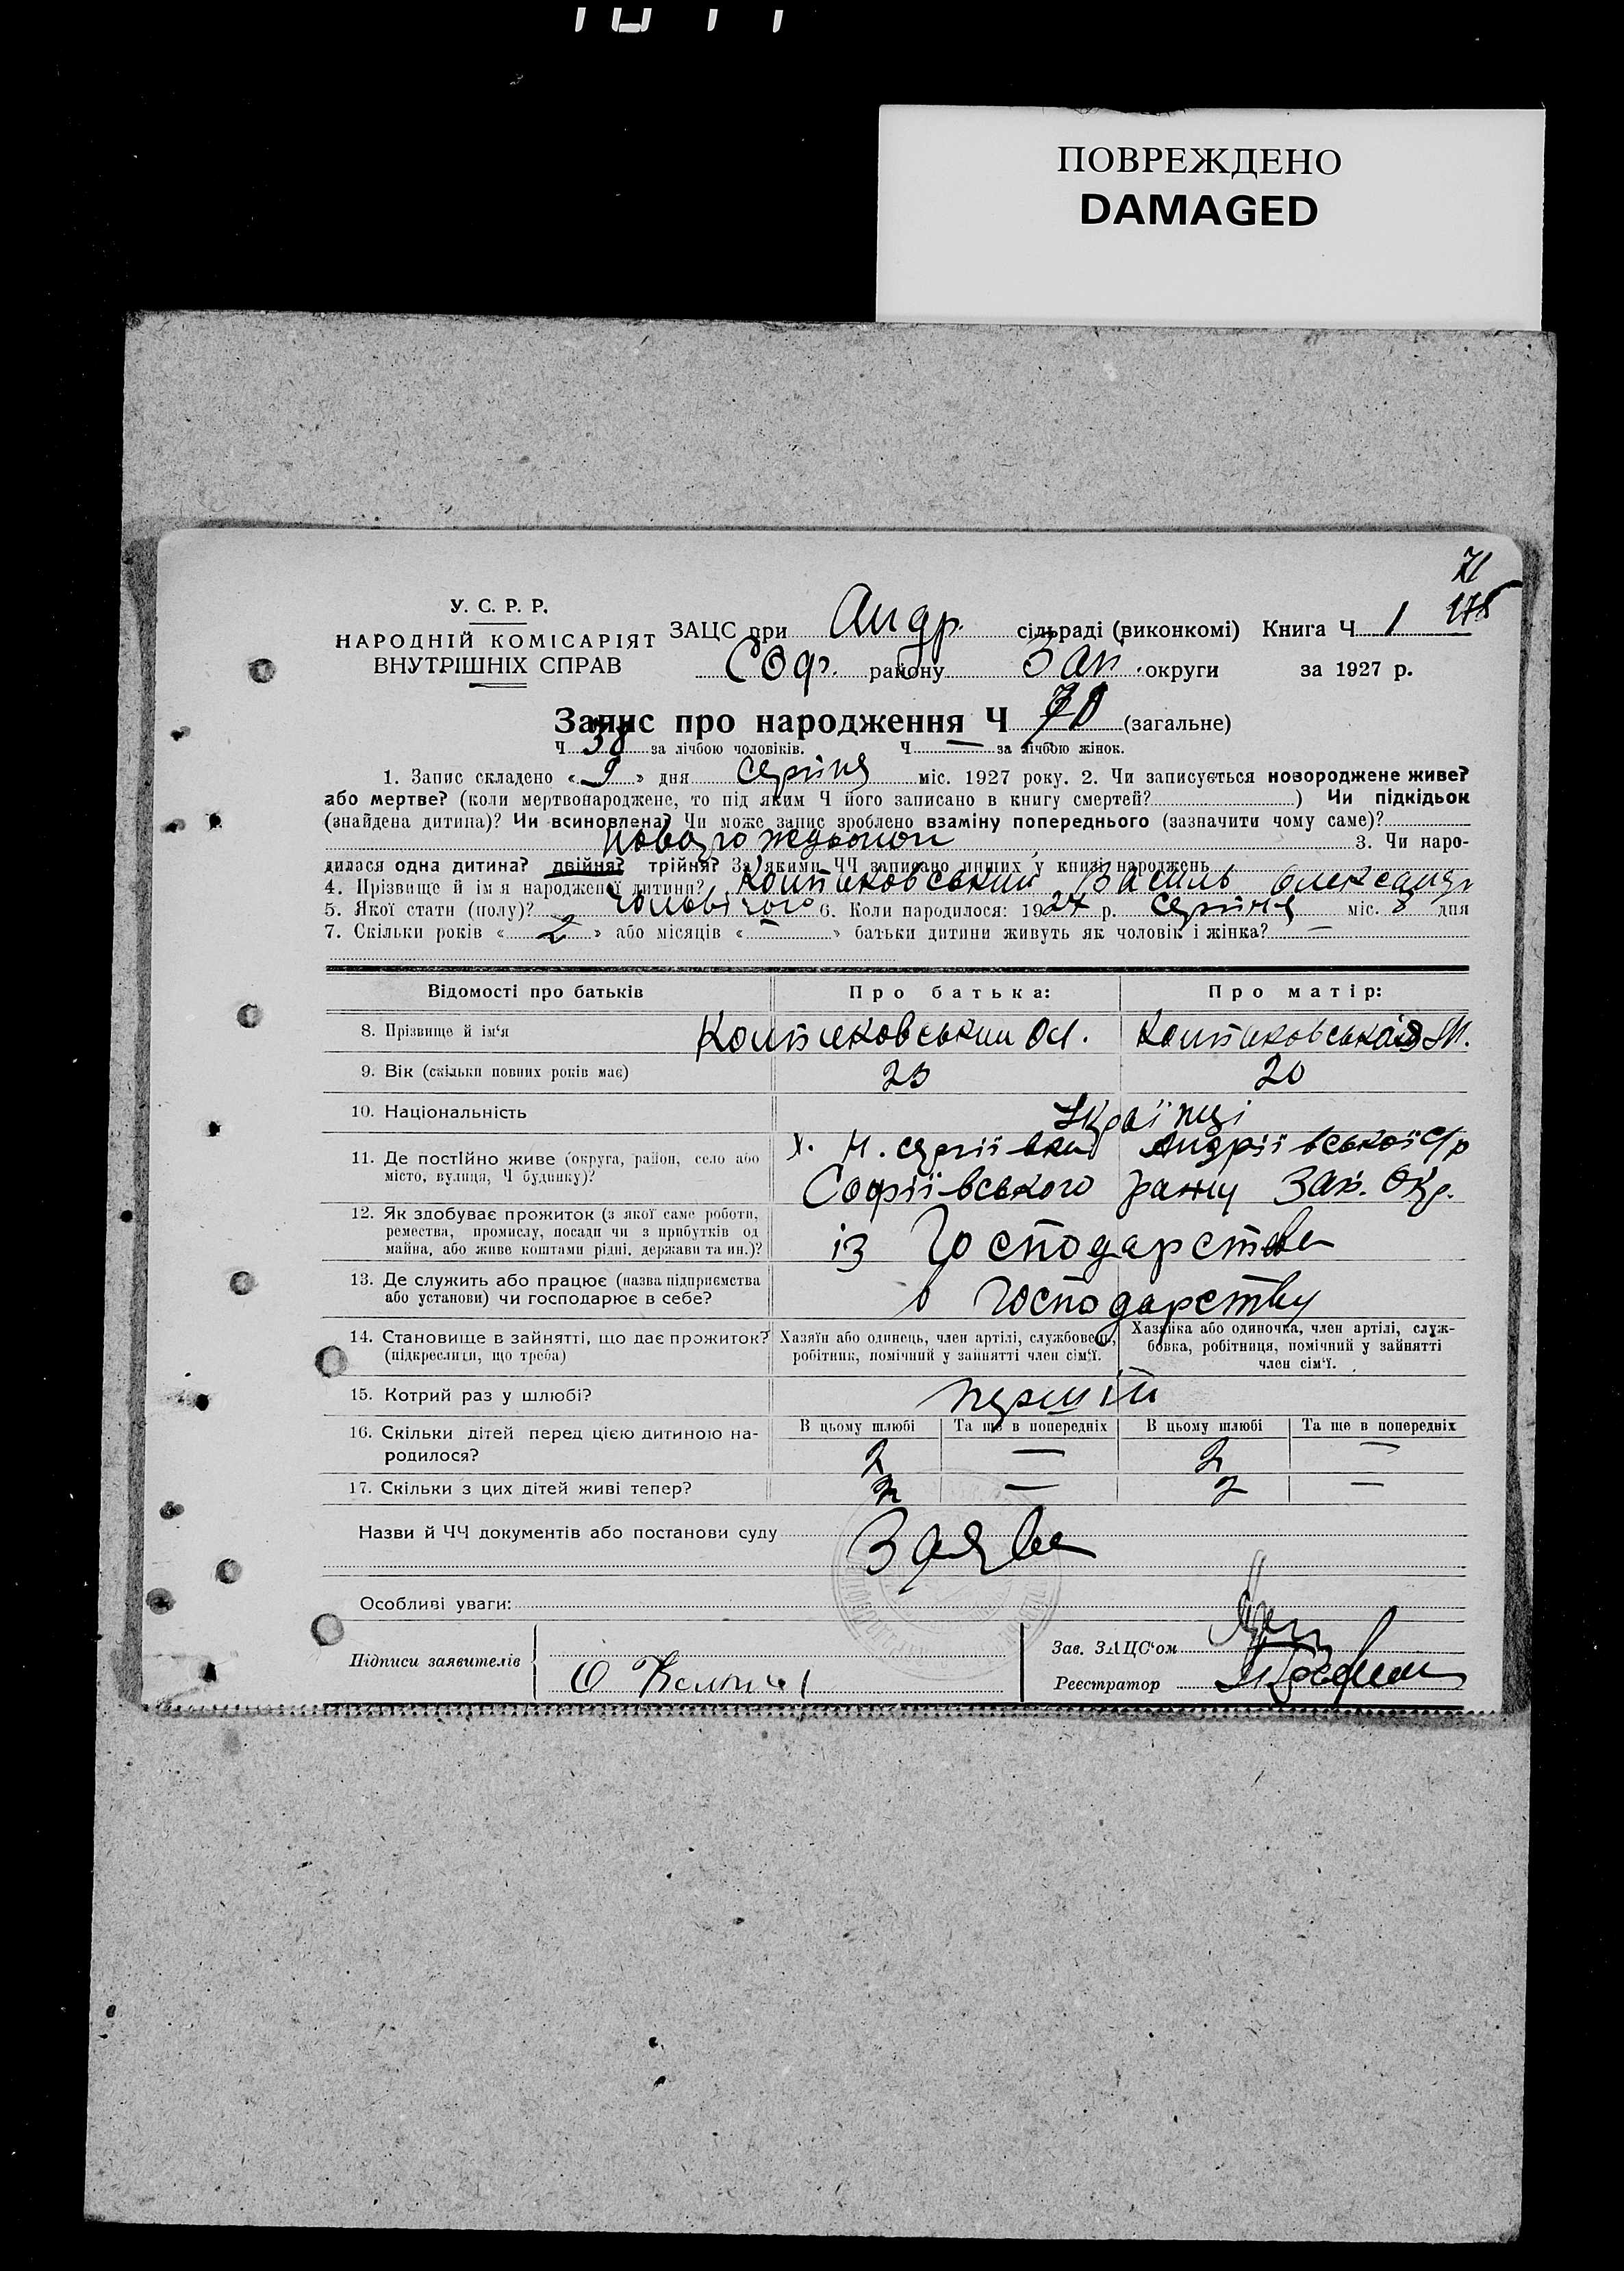 ПОВРЕЖДЕНО
DAMAGED
71
178
У. С. Р. Р.
НАРОДНІЙ КОМІСАРІЯТ
ВНУТРІШНІХ СПРАВ
ЗАЦС при Андр. сільраді (виконкомі) Книга Ч 1
Соф. району Зап. округи за 1927 р.
Запис про народження Ч 70 (загальне)
Ч 38 за лічбою чоловіків. Ч — за лічбою жінок.
1. Запис складено « 9 » дня серпня міс. 1927 року. 2. Чи записується новороджене живе?
або мертве? (коли мертвонароджене, то під яким Ч його записано в книгу смертей? ) Чи підкідьок
(знайдена дитина)? Чи всиновлена? Чи може запис зроблено взаміну попереднього (зазначити чому саме)?
3. Чи наро-
дилася одна дитина? двійня? трійня? За якими ЧЧ записано инших у книзі народжень
4. Прізвище й ім'я народженої дитини? Василь Олександр
5. Якої статі (полу)? чоловічого 6. Коли народилося: 1927 р. серпня міс. 8 дня
7. Скільки років « 2 » або місяців « — » батьки дитини живуть як чоловік і жінка? —
Відомості про батьків
Про батька:
Про матір:
8. Прізвище й ім'я
9. Вік (скільки повних років має) 23 20
10. Національність Українці
11. Де постійно живе (округа, район, село або
місто, вулиця, Ч будинку)?
х. Н. Сергіївка Андріївської с/р
Софіївського району Зап. Окр.
12. Як здобуває прожиток (з якої саме роботи,
ремества, промислу, посади чи з прибутків од
майна, або живе коштами рідні, держави та ин.)?
із господарства
13. Де служить або працює (назва підприємства
або установи) чи господарює в себе?
в господарству
14. Становище в зайнятті, що дає прожиток?
(підкреслити, що треба)
Хазяїн або одинець, член артілі, службовець,
робітник, помічний у зайнятті член сім'ї.
Хазяйка або одиночка, член артілі, служ-
бовка, робітниця, помічний у зайнятті
член сім'ї.
15. Котрий раз у шлюбі? перший
16. Скільки дітей перед цією дитиною на-
родилося?
В цьому шлюбі Та ще в попередніх В цьому шлюбі Та ще в попередніх
2 — 2 —
17. Скільки з цих дітей живі тепер? 2 — 2 —
Назви й ЧЧ документів або постанови суду Заява
Особливі уваги:
Підписи заявителів
Зав. ЗАЦС'ом
Реєстратор